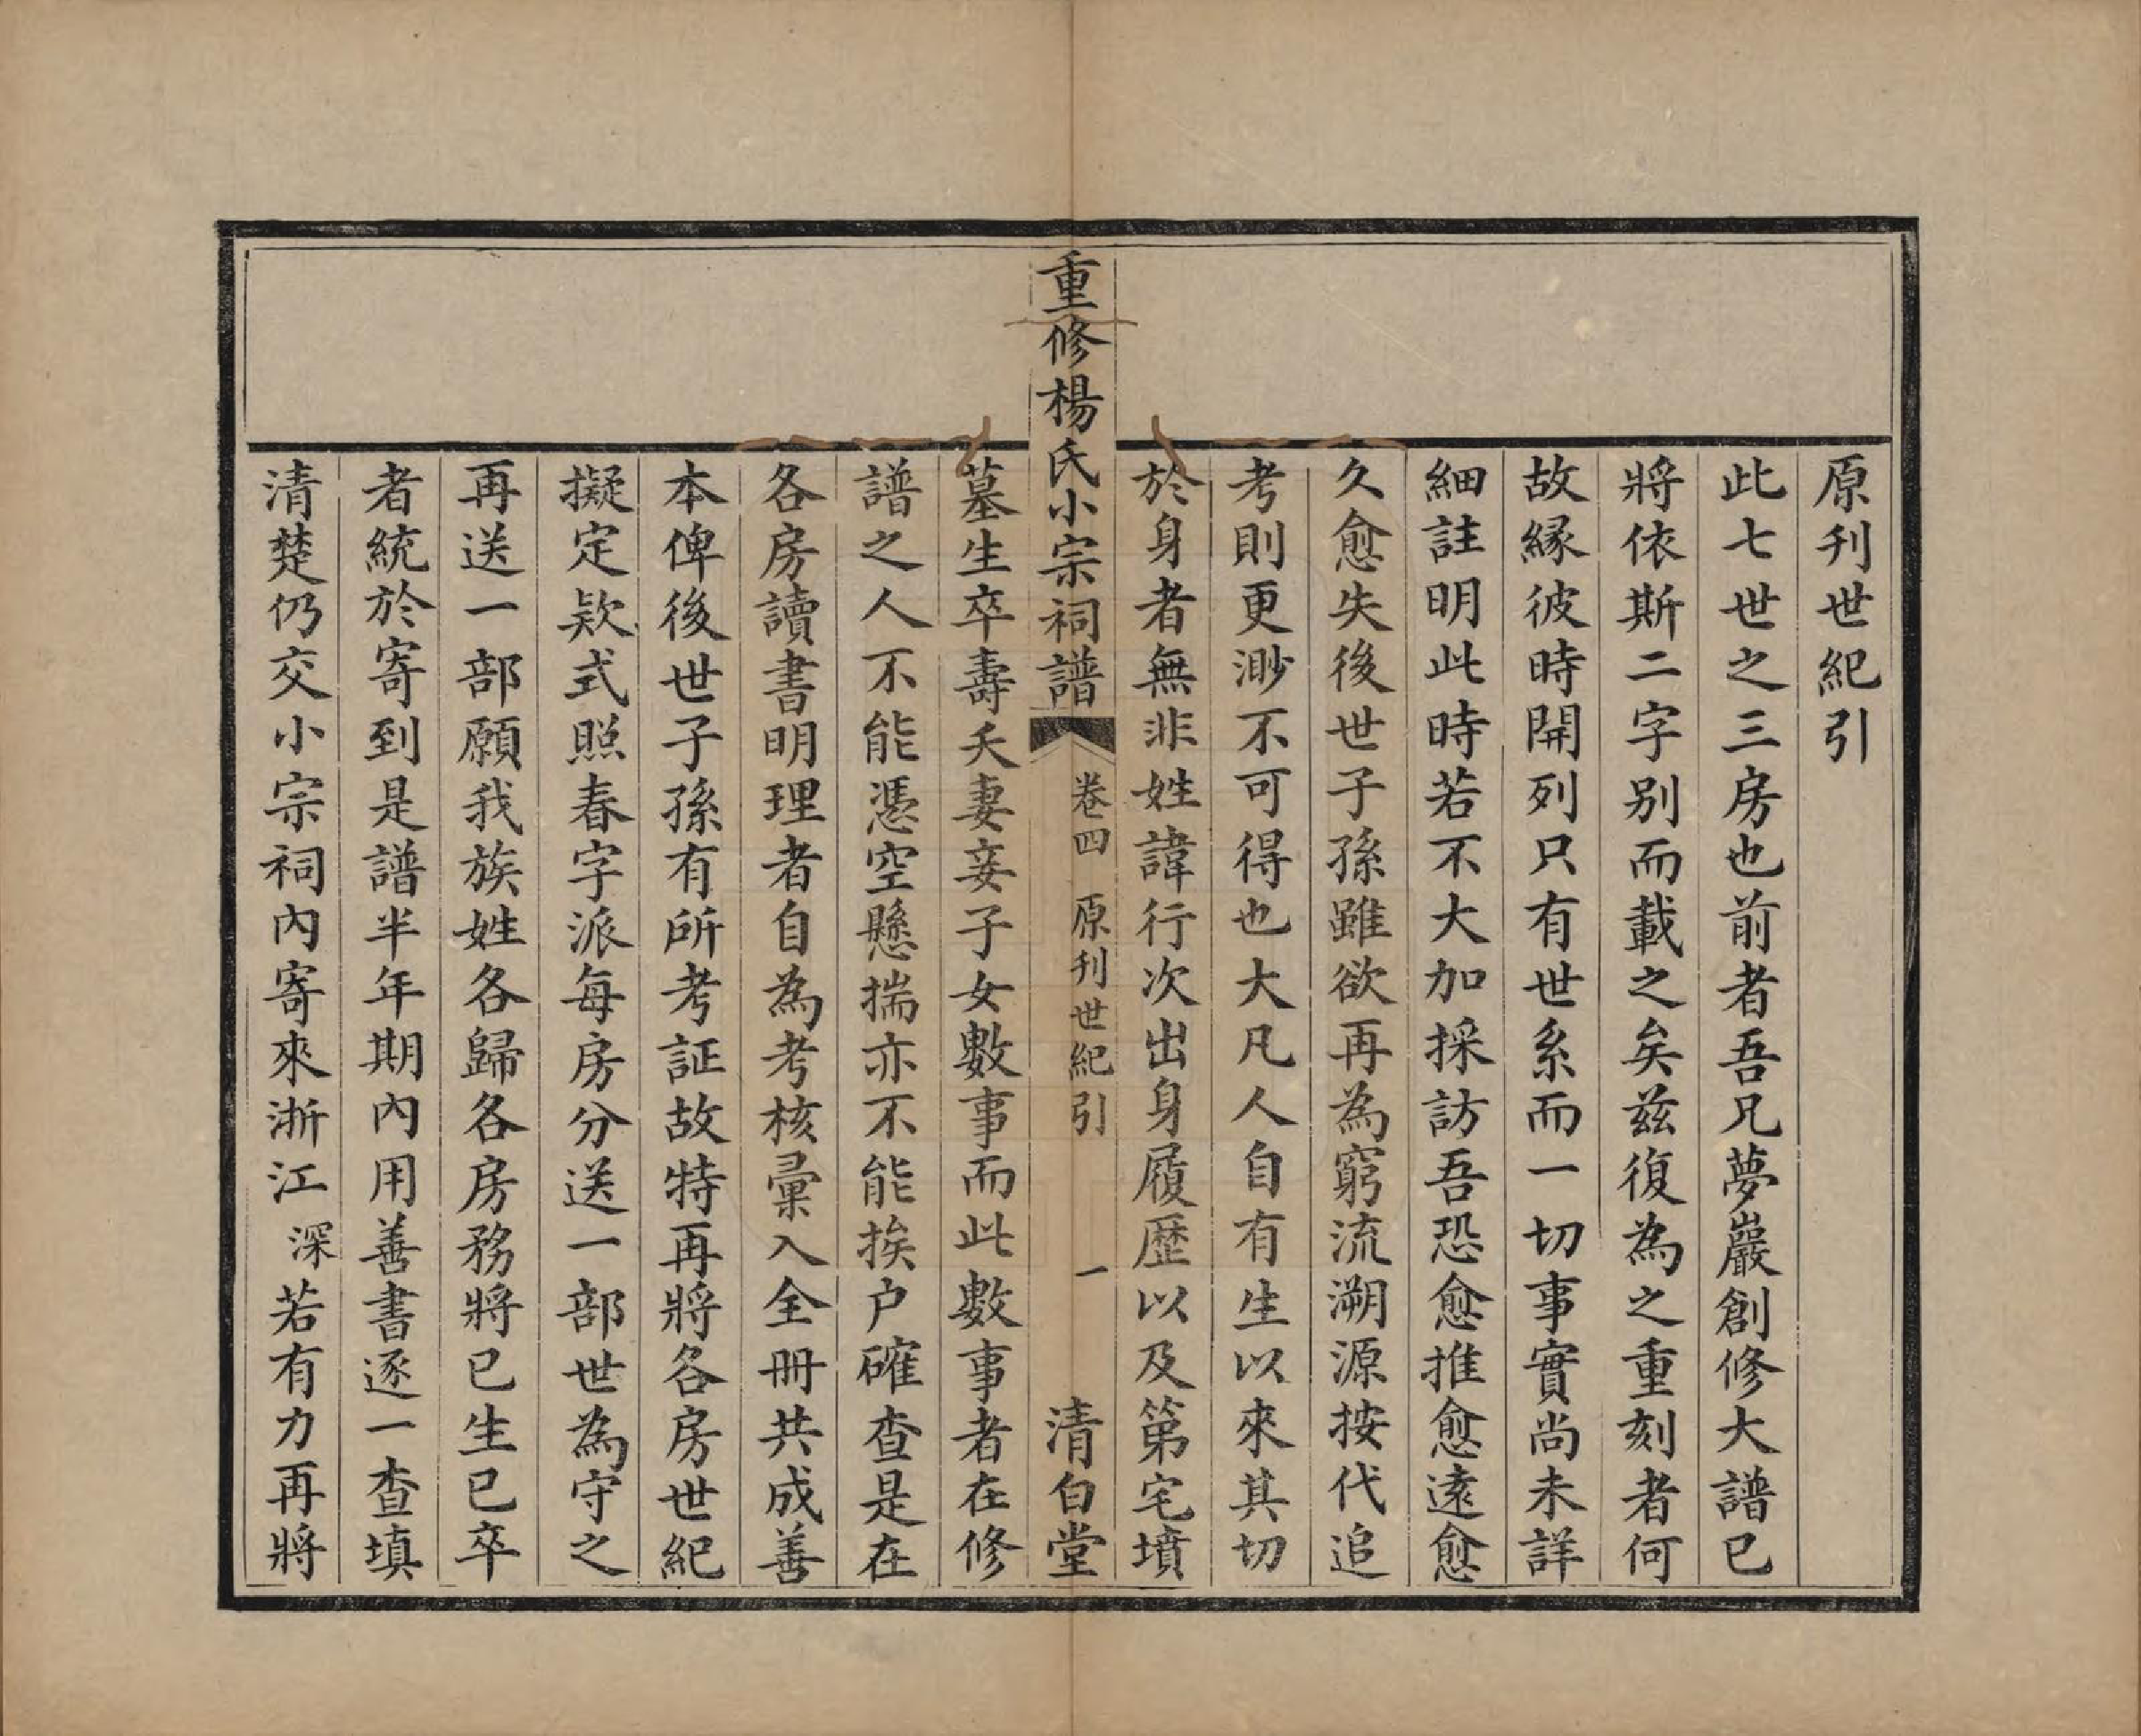 原刊世紀引
此七世之三房也前者吾凡夢巖創修大譜已
將依斯二字別而載之矣茲復為之重刻者何
故緣彼時開列只有世系而一切事實尚未詳
細註明此時若不大加採訪吾恐愈推愈遠愈
久愈失後世子孫雖欲再為窮流溯源按代追
考則更渺不可得也大凡人自有生以來其切
於身者無非姓諱行次出身履歷以及第宅墳
重修楊氏小宗祠譜 卷四 原刊世紀引 一 清白堂
墓生卒壽夭妻妾子女數事而此數事者在修
譜之人不能憑空懸揣亦不能挨户確查是在
各房讀書明理者自為考核彙入全冊共成善
本俾後世子孫有所考証故特再將各房世紀
擬定欵式照春字派每房分送一部世為守之
再送一部願我族姓各歸各房務將已生已卒
者統於寄到是譜半年期內用善書逐一查填
清楚仍交小宗祠內寄來浙江深若有力再將